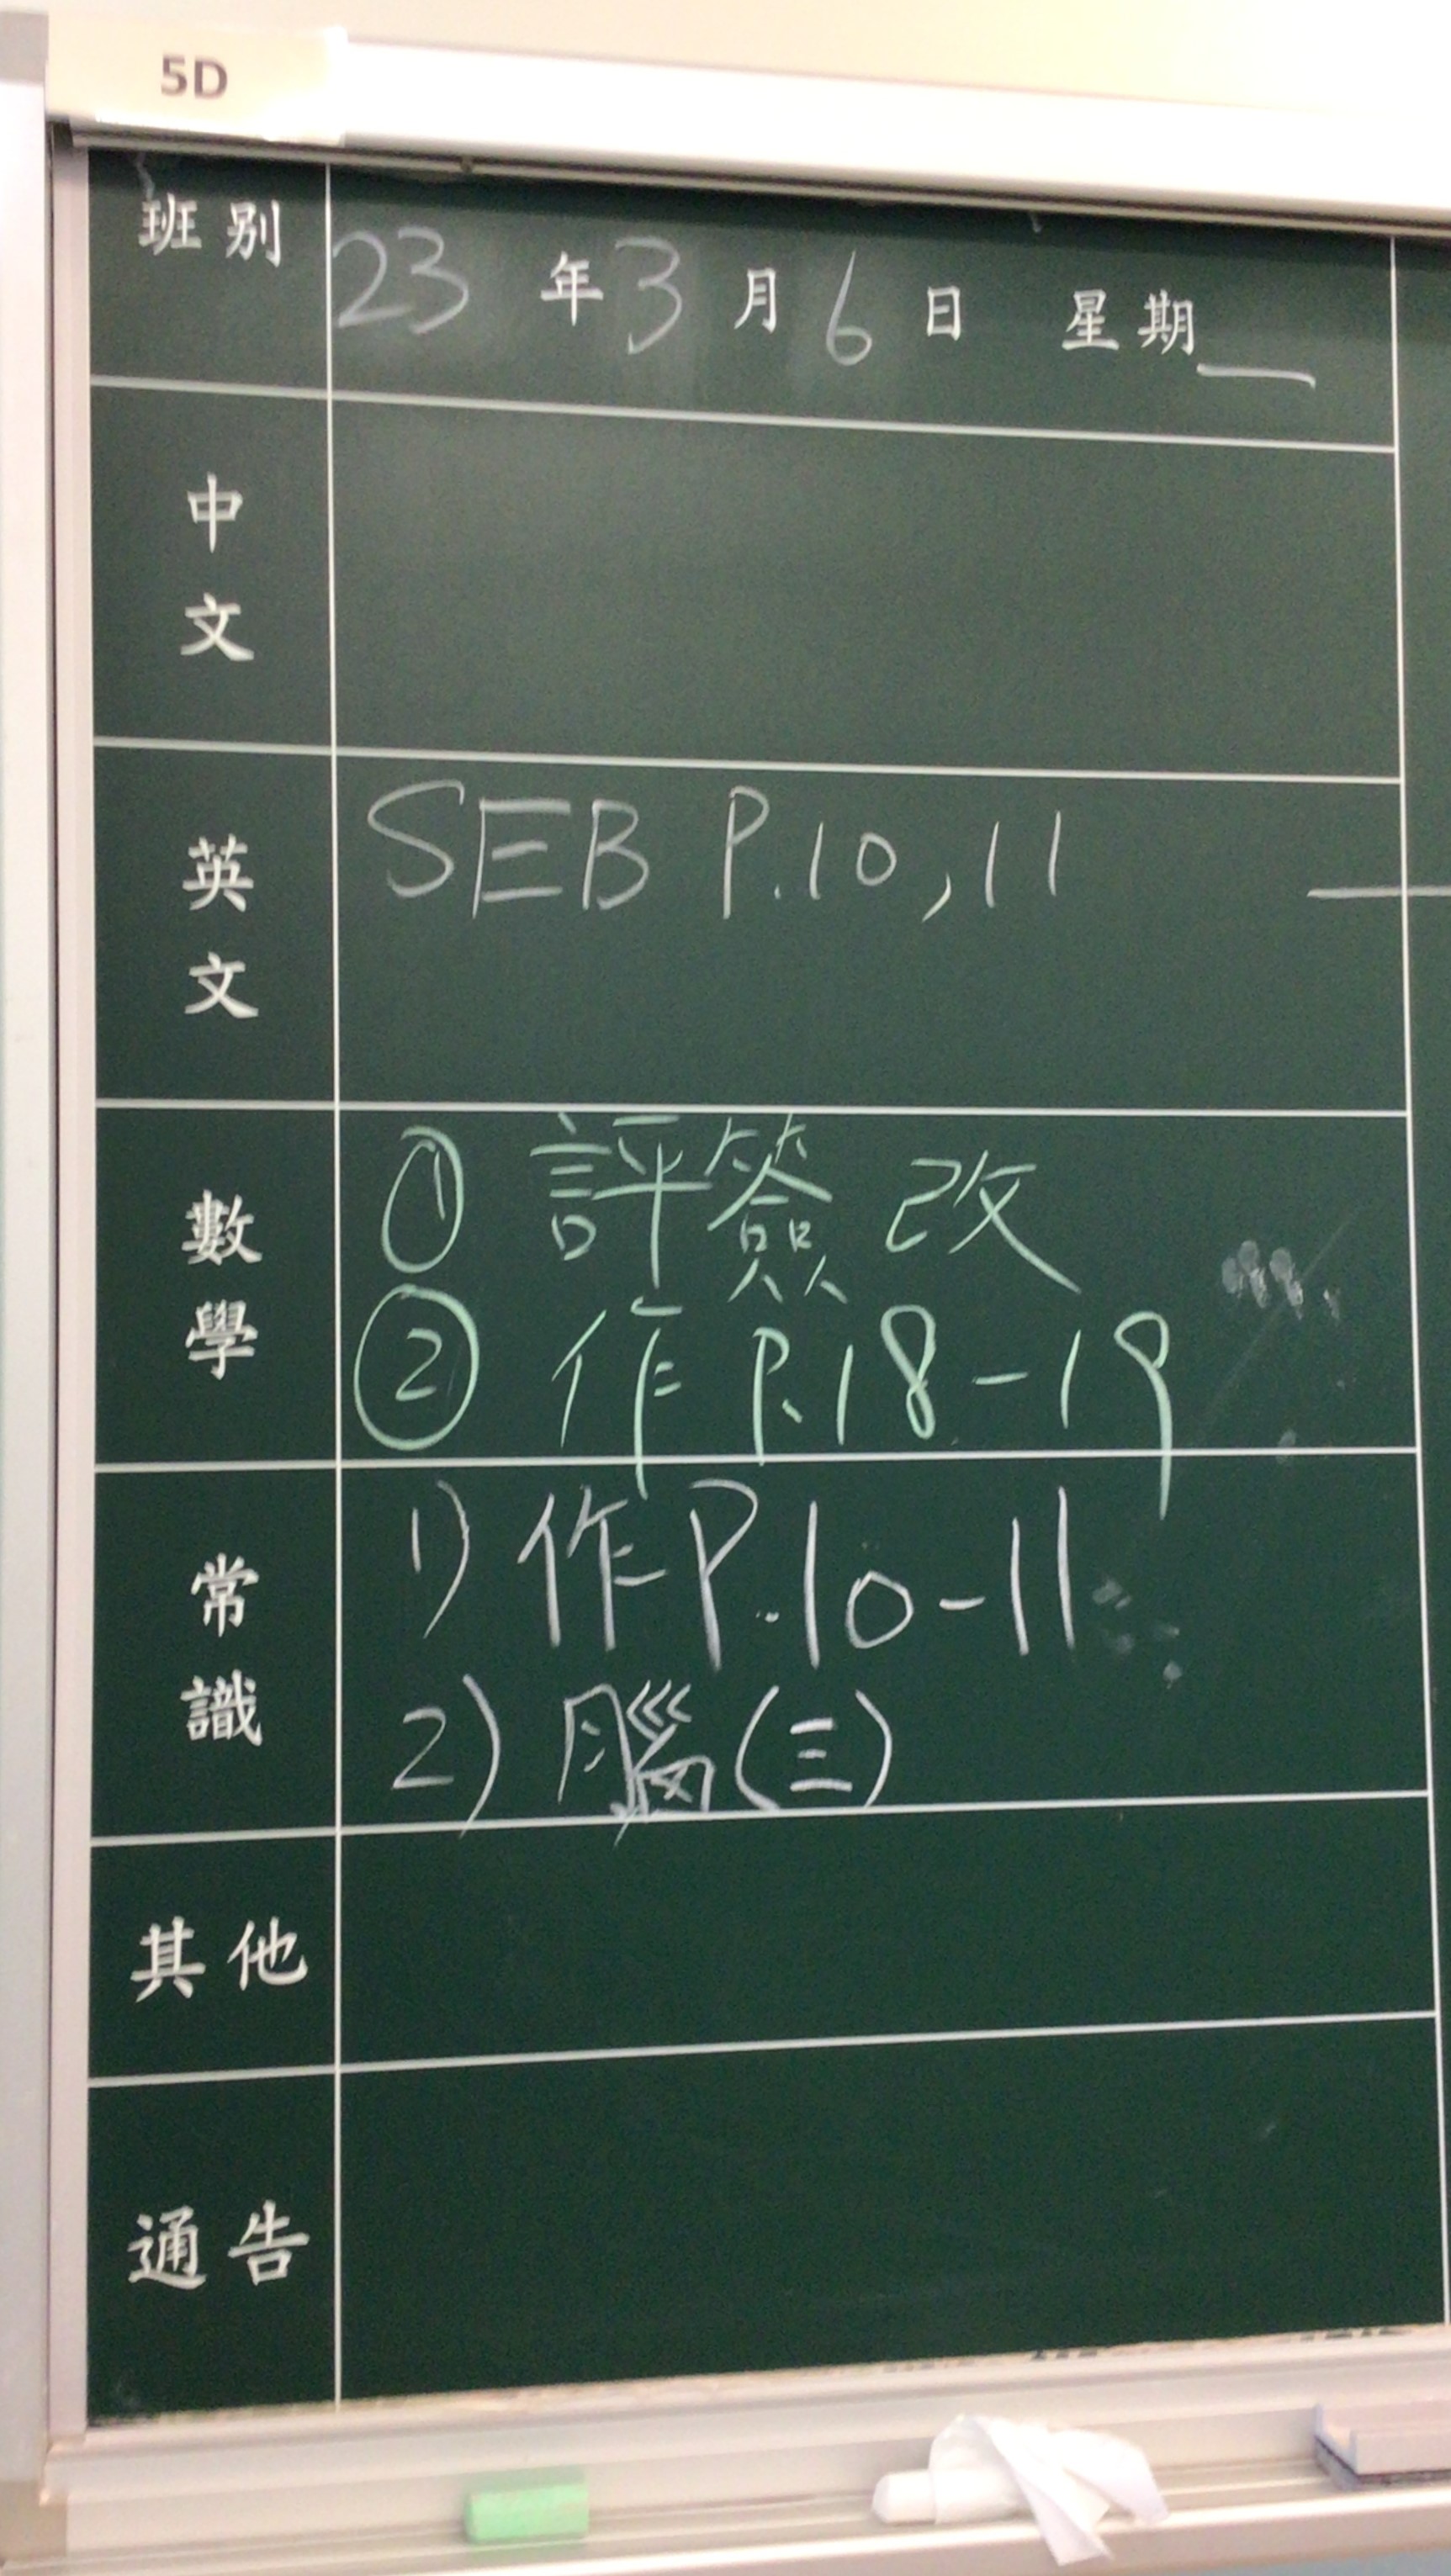 5D
班別 23 年 3 月 6 日 星期一
中文
英文 SEB P.10,11
數學 ① 評簽改
② 作 P.18-19
常識 1) 作P.10-11
2) 腦(三)
其他
通告